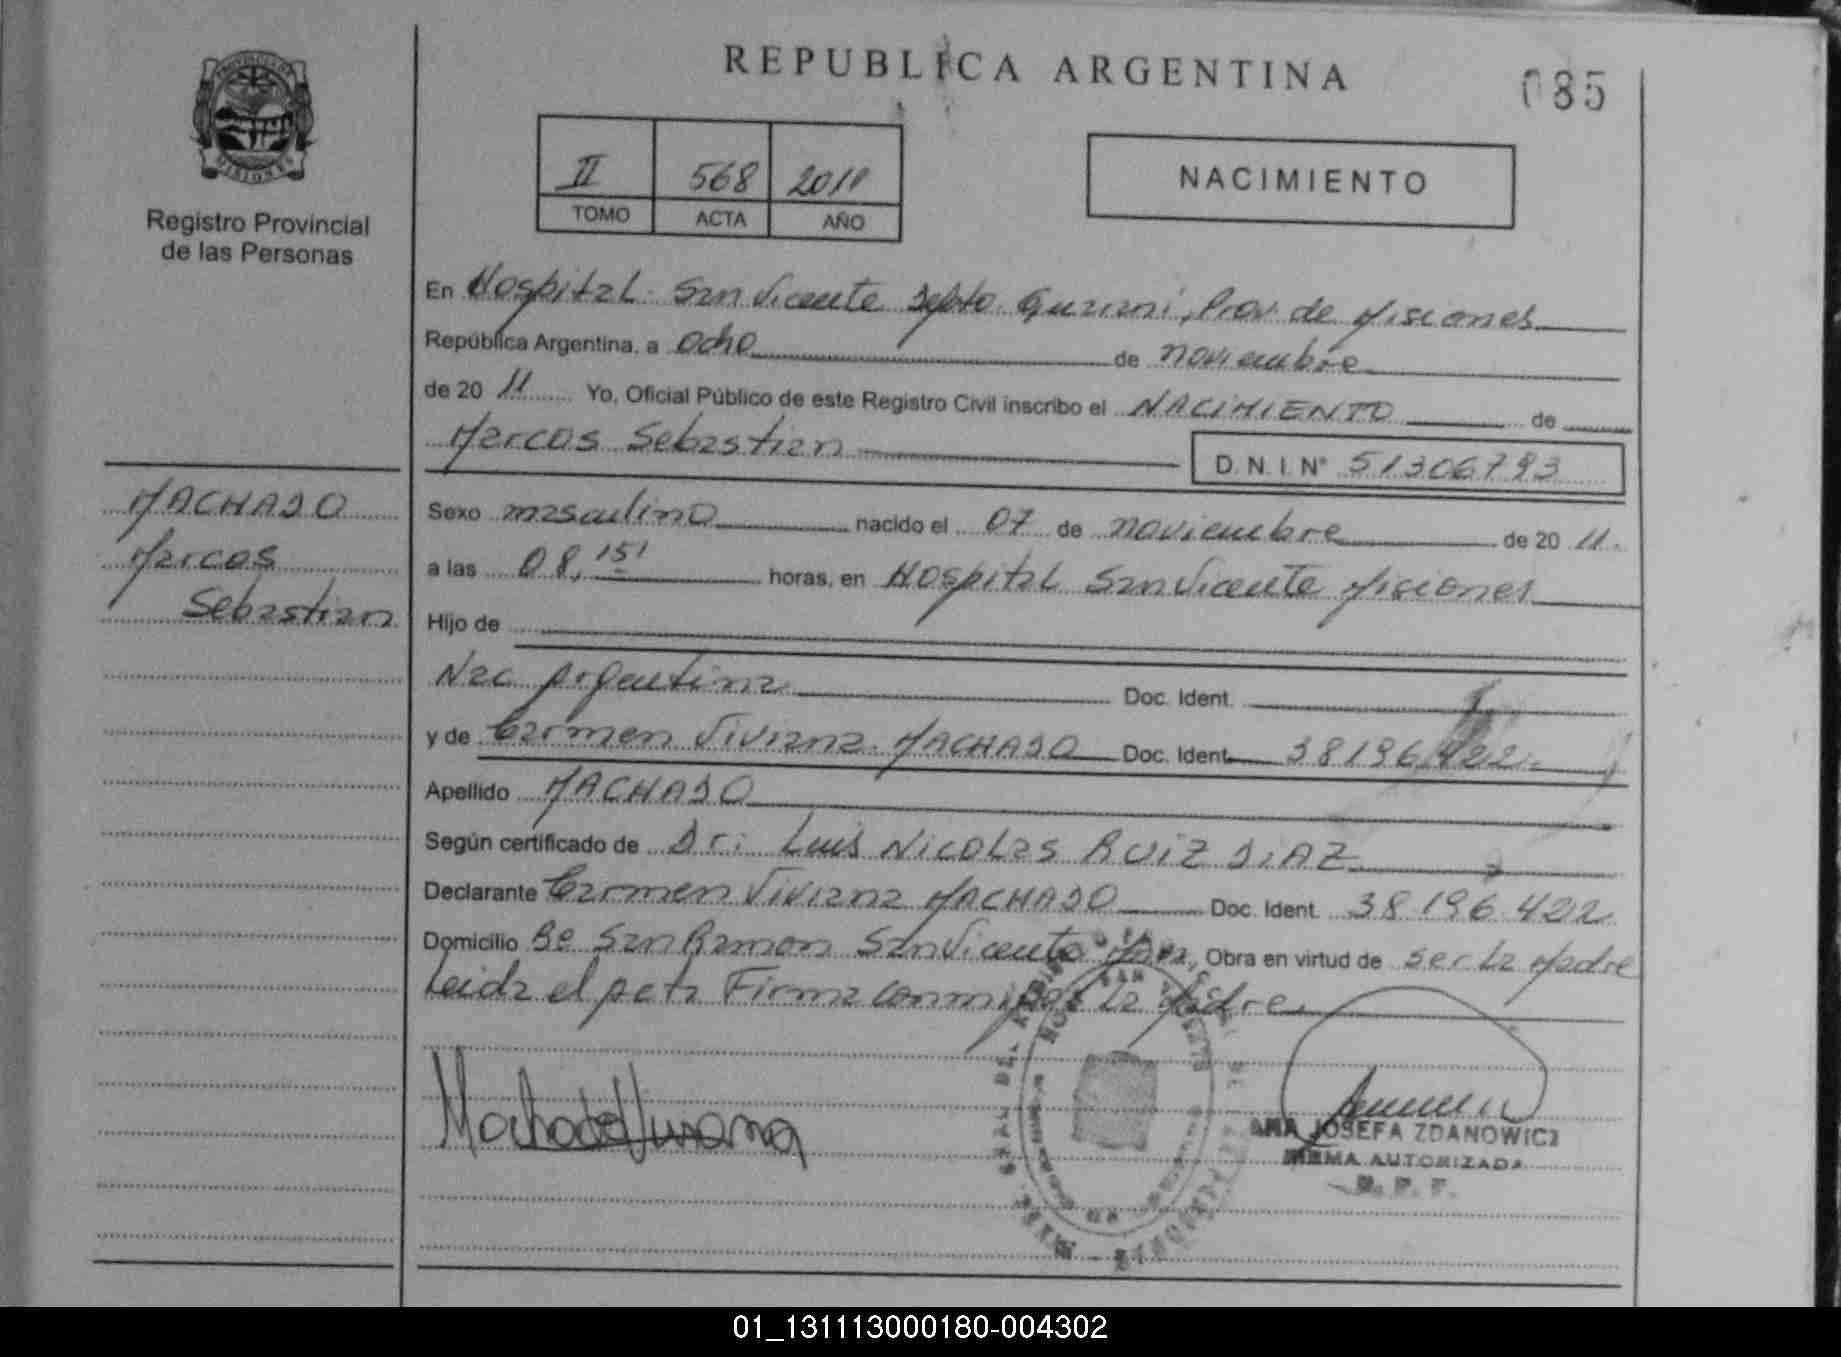 REPUBLICA ARGENTINA
085
PROVINCIA DE MISIONES
Registro Provincial
de las Personas
II 568 2011
TOMO ACTA AÑO
NACIMIENTO
En Hospital San Vicente Dpto. Guarani, Prov. de Misiones
República Argentina, a ocho de noviembre
de 20 11 Yo, Oficial Público de este Registro Civil inscribo el NACIMIENTO de
Marcos Sebastian D.N.I. N° 51306793
MACHADO
Marcos
Sebastian
Sexo masculino nacido el 07 de noviembre de 20 11.
a las 08,15 horas, en Hospital San Vicente Misiones
Hijo de
Nac Argentina Doc. Ident.
y de Carmen Viviana MACHADO Doc. Ident. 38196422
Apellido MACHADO
Según certificado de Dr: Luis Nicolas RUIZ DIAZ
Declarante Carmen Viviana MACHADO Doc. Ident. 38.196.422
Domicilio Bº San Ramon San Vicente Mnes, Obra en virtud de ser La Madre
Leida el Acta Firma conmigo La Madre.
Machado Viviana
ANA JOSEFA ZDANOWICZ
FIRMA AUTORIZADA
R. P. P.
01_131113000180-004302